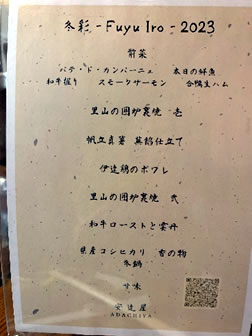 冬彩 - Fuyu Iro - 2023
前菜
パテ・ド・カンパーニュ 本日の鮮魚
和牛握り スモークサーモン 合鴨生ハム
里山の囲炉裏焼 壱
帆立真薯 葛餡仕立て
伊達鶏のポワレ
里山の囲炉裏焼 弐
和牛ローストと雲丹
県産コシヒカリ 香の物
冬鍋
甘味
安達屋
ADACHIYA